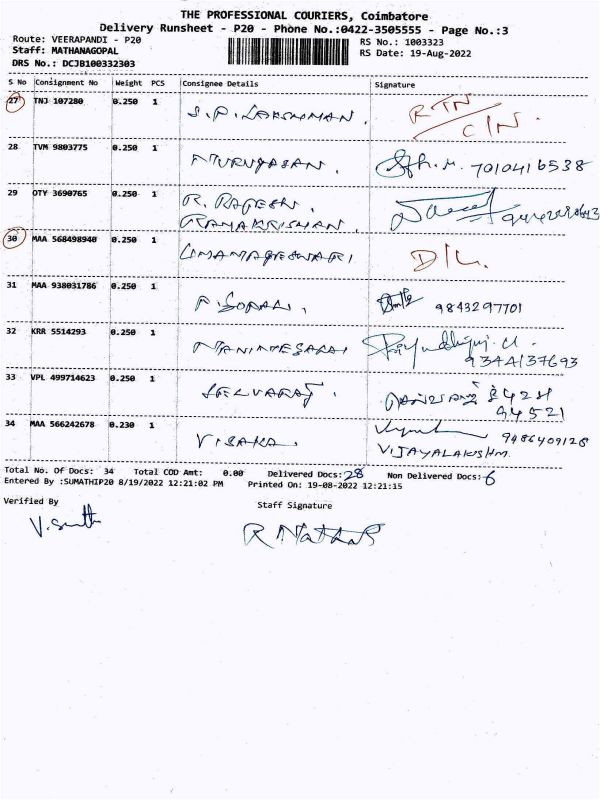 THE PROFESSIONAL COURIERS, Coimbatore
Delivery Runsheet - P20 - Phone No.:0422-3505555 - Page No.:3
Route: VEERAPANDI - P20 RS No.: 1003323
Staff: MATHANAGOPAL RS Date: 19-Aug-2022
DRS No.: DCJB100332303
S No Consignment No Weight PCS Consignee Details Signature
27 TNJ 107280 0.250 1 S.P. LAKSHMAN. RTN
C/N.
28 TVM 9803775 0.250 1 MURUGASAN. 7010416538
29 OTY 3690765 0.250 1 R. RAJESH.
RAMAKRISHAN
30 MAA 568498940 0.250 1 UMAMAGESWARI D/L.
31 MAA 938031786 0.250 1 9843297701
32 KRR 5514293 0.250 1 MANIMEGARAI
9344137693
33 VPL 499714623 0.250 1 SELVARAJ.
94521
34 MAA 566242678 0.230 1 VISAKA. 9486409128
VIJAYALAKSHM.
Total No. Of Docs: 34 Total COD Amt: 0.00 Delivered Docs: 28 Non Delivered Docs: 6
Entered By :SUMATHIP20 8/19/2022 12:21:02 PM Printed On: 19-08-2022 12:21:15
Verified By Staff Signature